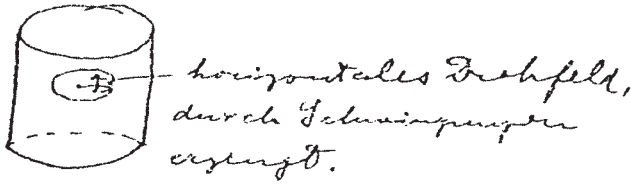 horizontales Drehfeld,
durch Schwingungen
erzeugt.